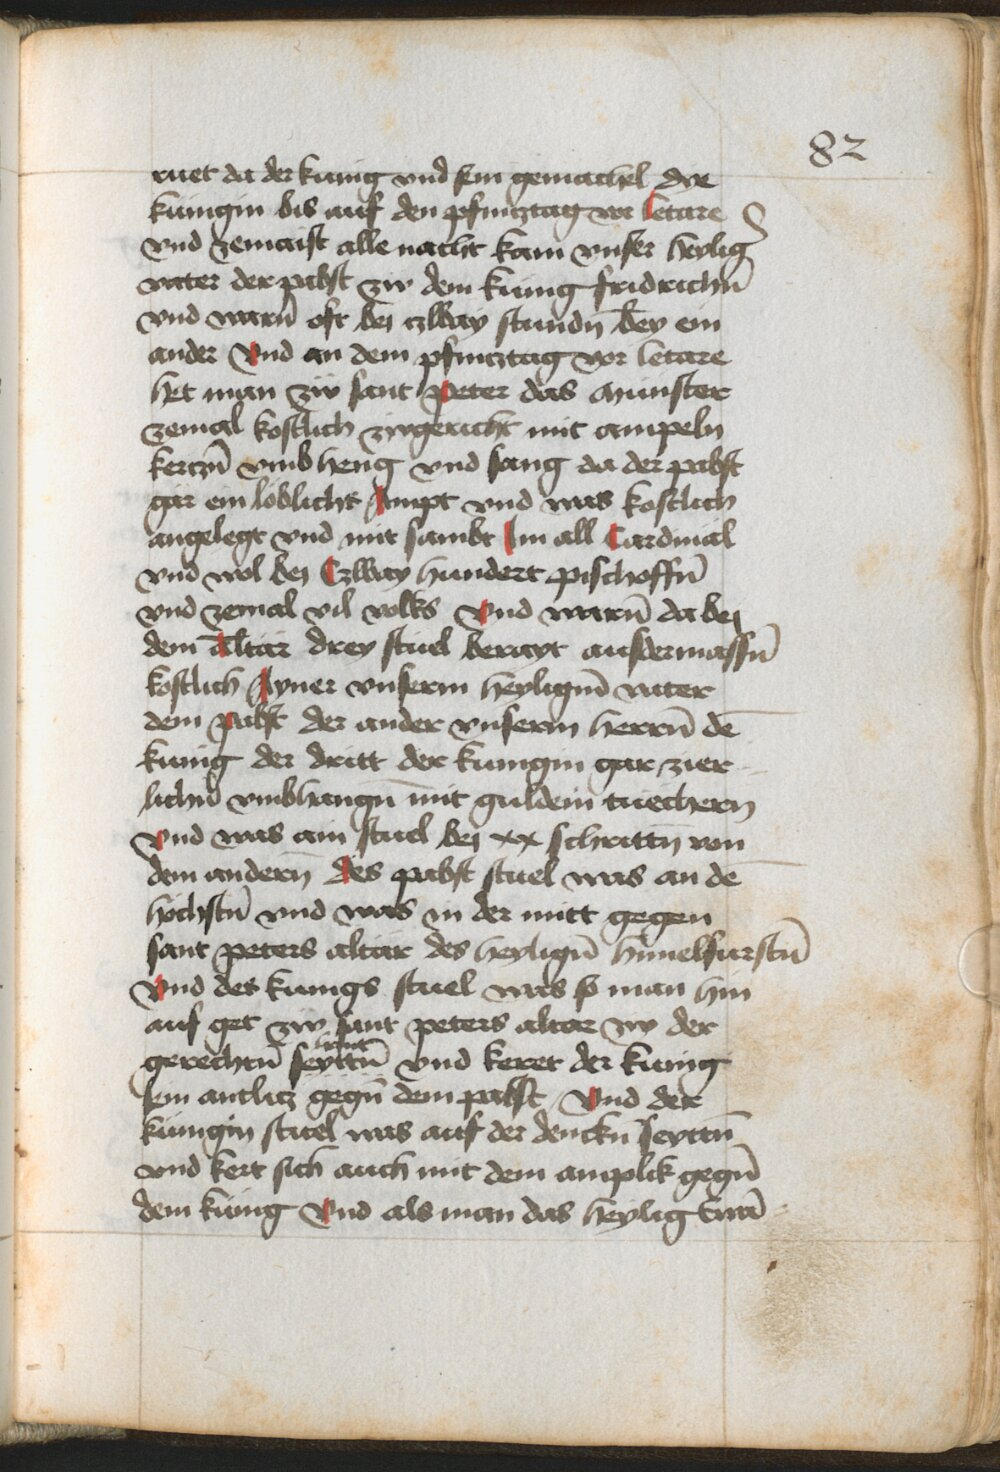 82
ruet da der kunig vnd sein gemachel die
kunigin bis auf den pfincztag vor letare
vnd zemaist alle nacht kam vnser heylig
vater der pabst zw dem kunig fridrichn̄
vnd warn̄ oft bej czway stundn̄ bey ein
ander Vnd an dem pfincztag vor letare
het man zw sant peter das munster
zemal kostlich zwgericht mit ampeln
kerczn̄ vmbheng vnd sang da der pabst
gar ein loblicht Ampt vnd was kostlich
angelegt vnd mit sambt Im all Cardinal
vnd wol bej Czway hundert pischoffn̄
vnd zemal vil volks Vnd warn̄ da bej
dem altar drey stuel berayt ausdermassn̄
kostlich Ayner vnserm heylign̄ vater
dem pabst der ander vnserm herrn̄ dē
kunig der dritt der kunigin gar zier
lichn̄ vmbhangn̄ mit guldein tuechern
Vnd was ain stuel bej xx schrittn̄ von
dem andern̄ des pabst stuel was an dē
hochstn̄ vnd was in der mitt gegen
sant peters altar des heylign̄ himelfurstn̄
Vnd des kunigs stuel was so man hin
auf get zw sant peters altar zw der
gerechtn̄ seyttn̄ vnd keret der kunig
sein antlicz gegn̄ dem pabst Vnd der
kunigin stuel was auf der denckn̄ seyttn̄
vnd kert sich auch mit dem anplik gegn̄
dem kunig Vnd als man das heylig Ewā